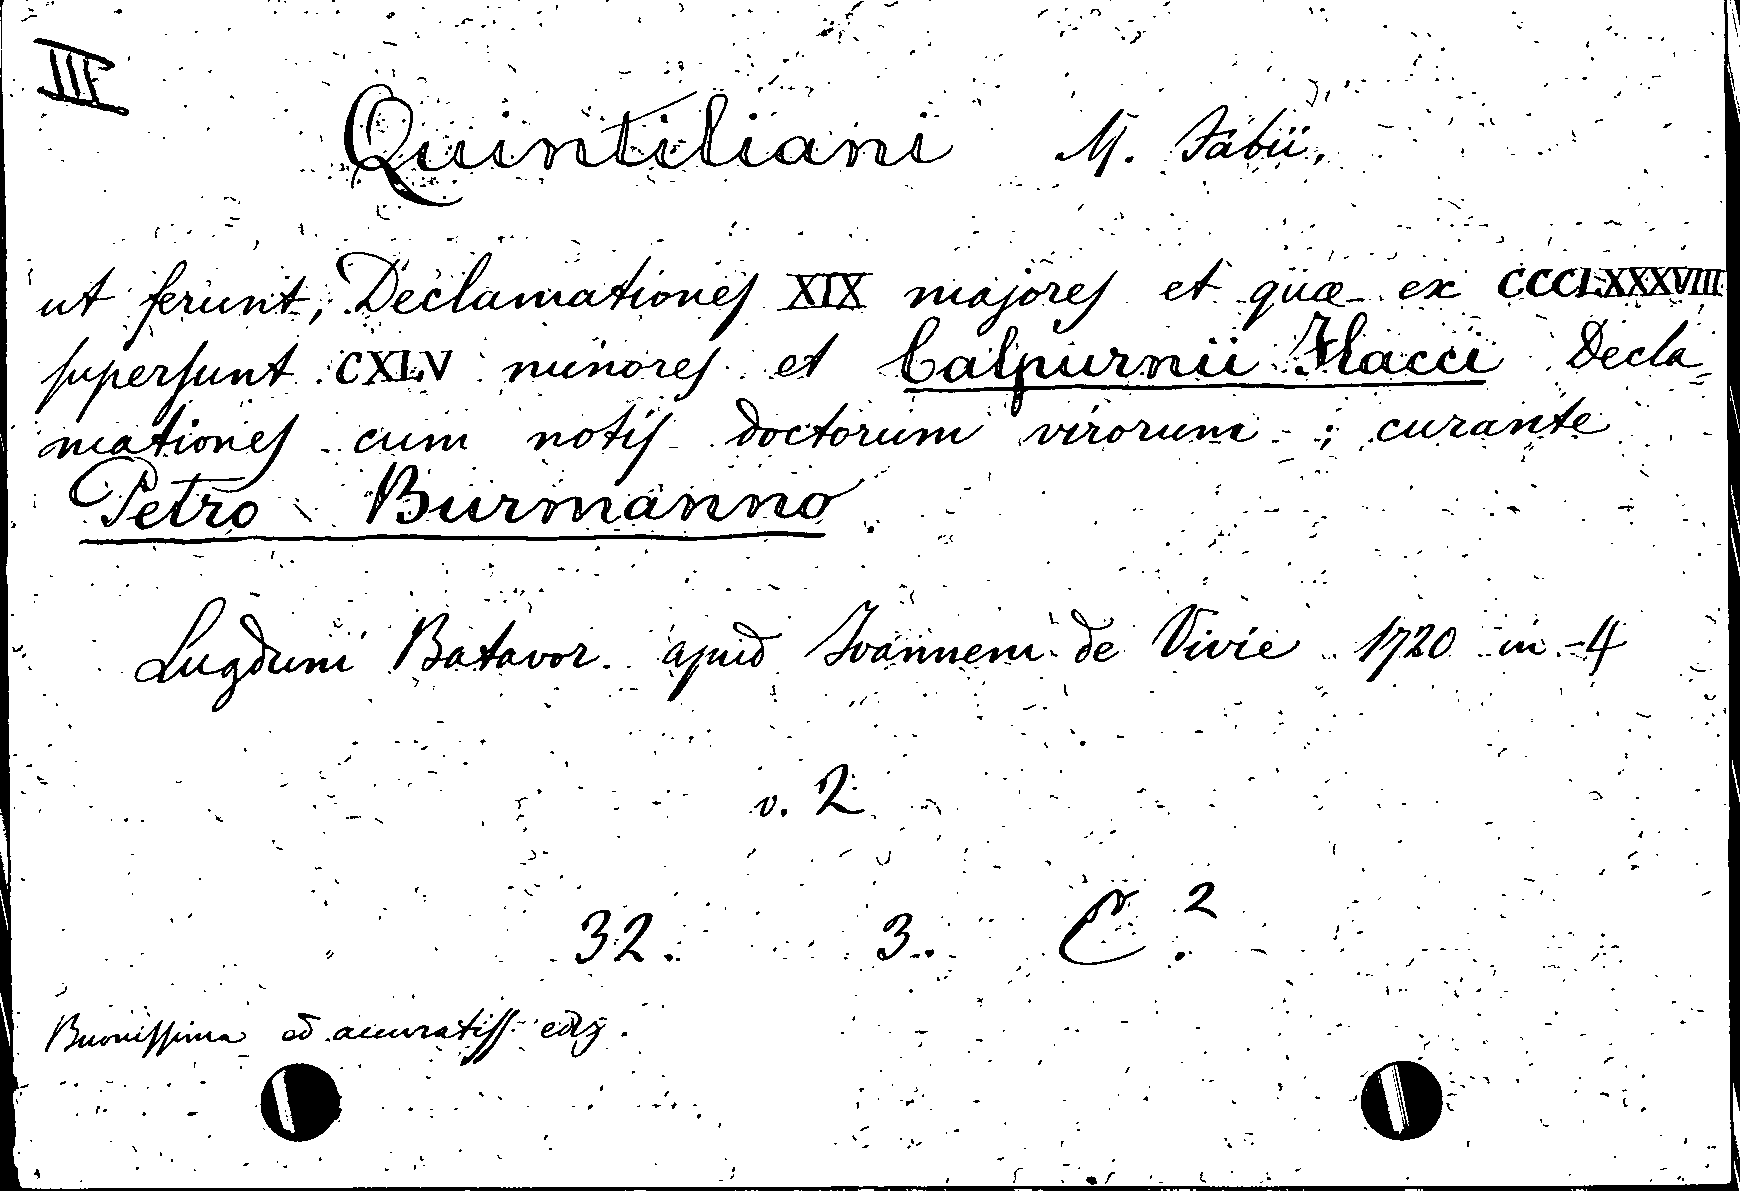 III
Quintiliani M. Fabii,
ut ferunt, Declamationes XIX majores et quæ ex CCCLXXXVIII
supersunt CXLV minores et Calpurnii Flacci Decla=
mationes cum notis doctorum virorum ; curante
Petro Burmanno.
Lugduni Batavor. apud Ioannem de Vivie 1720 in -4
v. 2
32. 3. C. 2
Buonissima ed accuratiss. ediz.